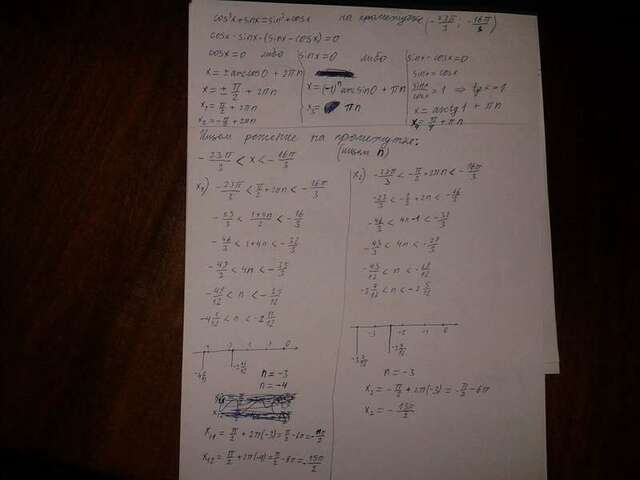 cos³x+sinx=sin³+cosx на промежутке (-23π/3; -16π/3)
cosx·sinx·(sinx-cosx)=0
cosx=0 либо sinx=0 либо sinx-cosx=0
x=±arccos0+2πn
x=±π/2+2πn
x₁=π/2+2πn
x₂=-π/2+2πn
x=(-1)ⁿarcsin0+πn
x₃= πn
sinx=cosx
sinx/cosx=1 ⇒
x=arctg1+πn
x₄=π/4+πn
Ищем решение на промежутке:
(ищем n)
-23π/3<x<-16π/3
x₁) -23π/3<π/2+2πn<-16π/3
-23/3<1+4n/2<-16/3
-46/3<1+4n<-32/3
-49/3<4n<-35/3
-49/12<n<-35/12
-4 1/12<n<-2 11/12
-3 -2 -1 0
-4 1/12 -2 11/12
n=-3
n=-4
x₁₁=π/2+2π(-3)=π/2-6π=-11π/2
x₁₂=π/2+2π(-4)=π/2-8π=-15π/2
x₂) -23π/3<-π/2+2πn<-16π/3
-23/3<-1/2+2n<-16/3
-46/3<4n-1<-32/3
-43/3<4n<-29/3
-43/12<n<-29/12
-3 7/12<n<-2 5/12
-3 -2 -1 0
n=-3
x₂=-π/2+2π(-3)=-π/2-6π
x₂=-13π/2